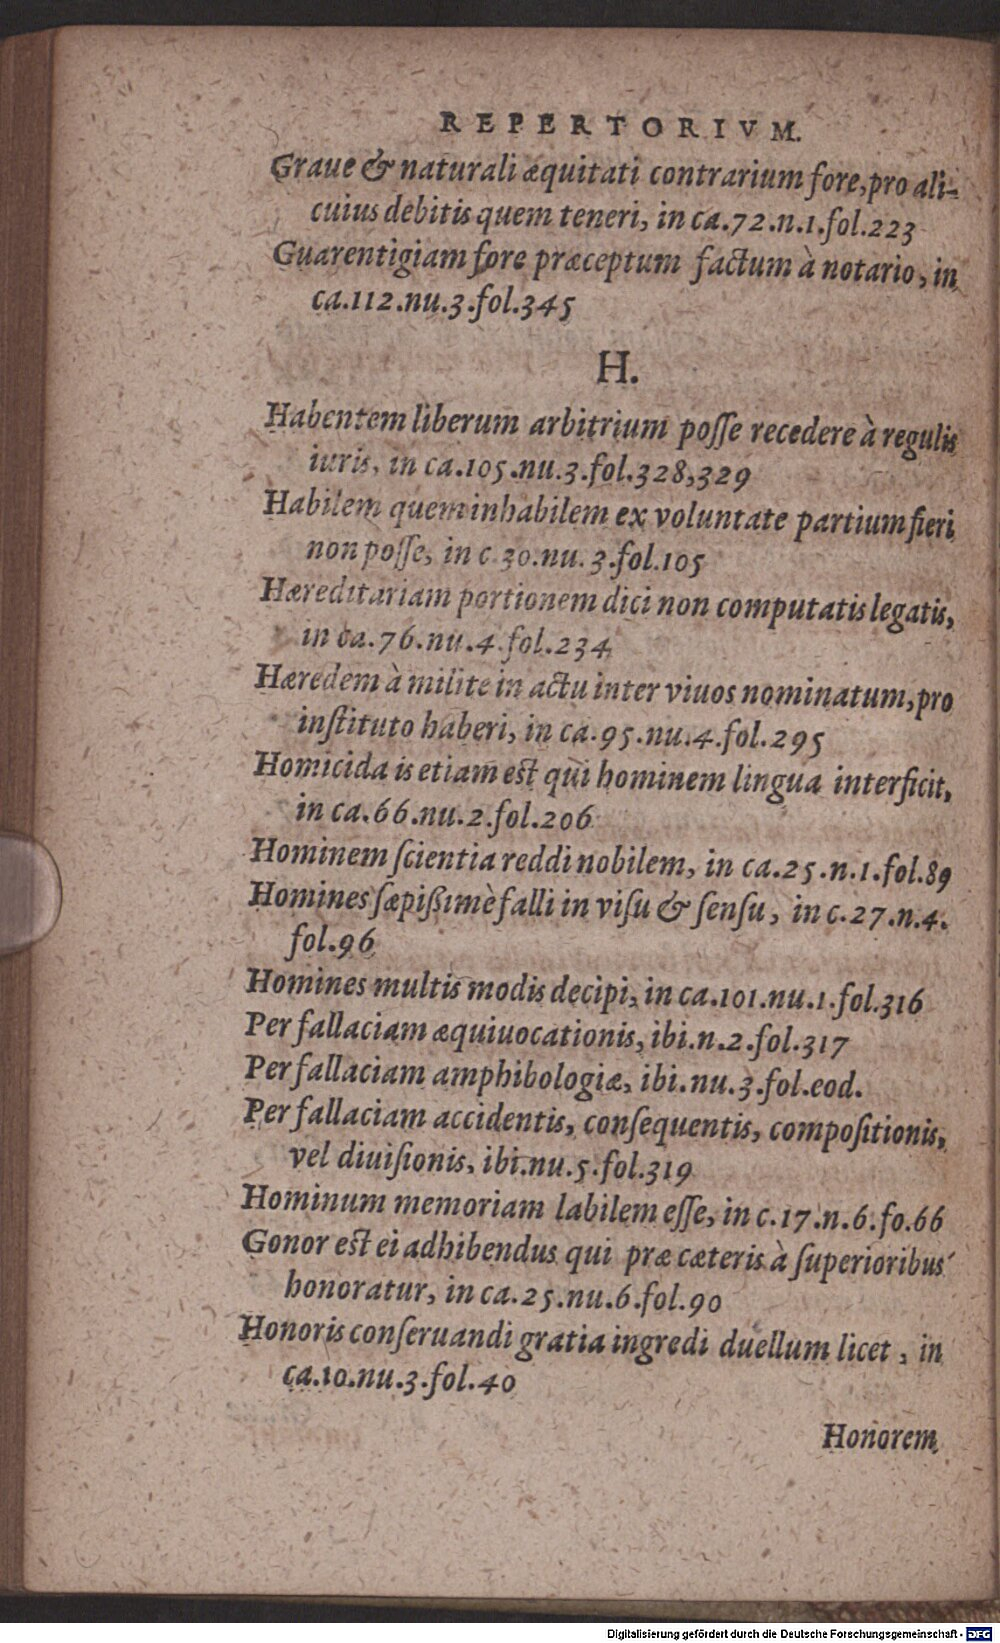 REPERTORIVM.
Graue & naturali æquitati contrarium fore, pro ali-
cuius debitis quem teneri, in ca.72.n.1.fol.223
Guarentigiam fore præceptum factum à notario, in
ca.112.nu.3.fol.345
H.
Habentem liberum arbitrium posse recedere à regulis
iuris, in ca.105.nu.3.fol.328,329
Habilem quem inhabilem ex voluntate partium fieri
non posse, in c.30.nu.3.fol.105
Hæreditariam portionem dici non computatis legatis,
in ca.76.nu.4.fol.234
Hæredem à milite in actu inter viuos nominatum, pro
instituto haberi, in ca.95.nu.4.fol.295
Homicida is etiam est qui hominem lingua interficit,
in ca.66.nu.2.fol.206
Hominem scientia reddi nobilem, in ca.25.n.1.fol.89
Homines sæpißimè falli in visu & sensu, in c.27.n.4.
fol.96
Homines multis modis decipi, in ca.101.nu.1.fol.316
Per fallaciam æquiuocationis, ibi.n.2.fol.317
Per fallaciam amphibologiæ, ibi.nu.3.fol.eod.
Per fallaciam accidentis, consequentis, compositionis,
vel diuisionis, ibi.nu.5.fol.319
Hominum memoriam labilem esse, in c.17.n.6.fo.66
Gonor est ei adhibendus qui præ cæteris à superioribus
honoratur, in ca.25.nu.6.fol.90
Honoris conseruandi gratia ingredi duellum licet, in
ca.10.nu.3.fol.40
Honorem
Digitalisierung gefördert durch die Deutsche Forschungsgemeinschaft - DFG